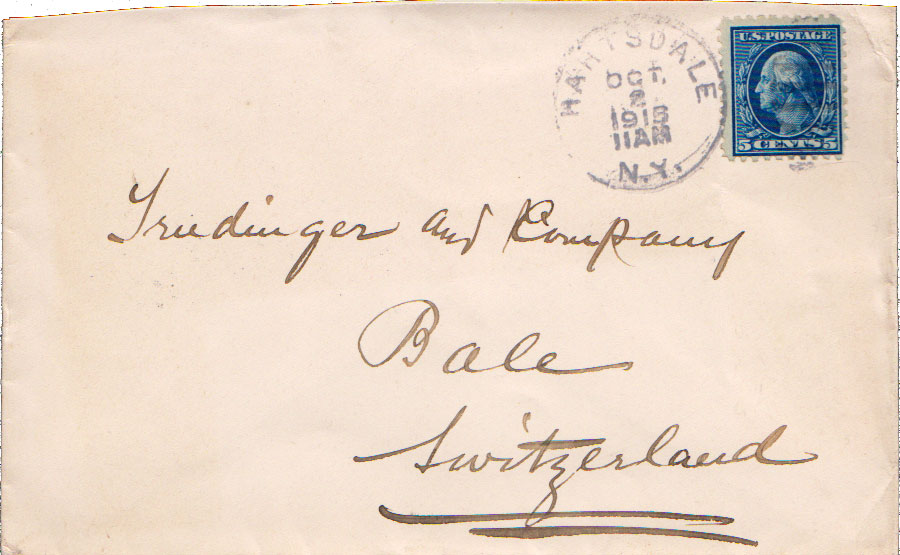 HARTSDALE
OCT.
2
1915
11AM
N.Y.
U.S. POSTAGE
5 CENTS 5
Iruedinger and Company
Bale
Switzerland